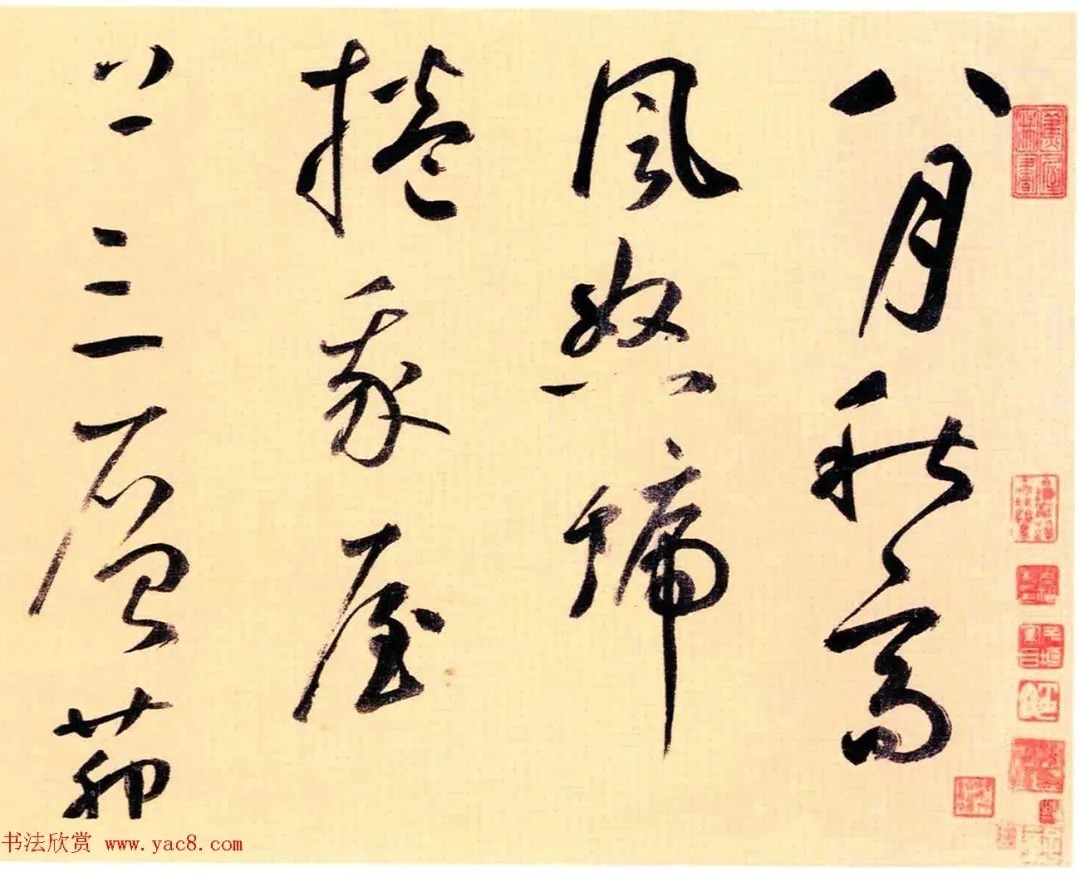 八月秋高
風怒號
捲我屋
上三層茆
书法欣赏 www.yac8.com